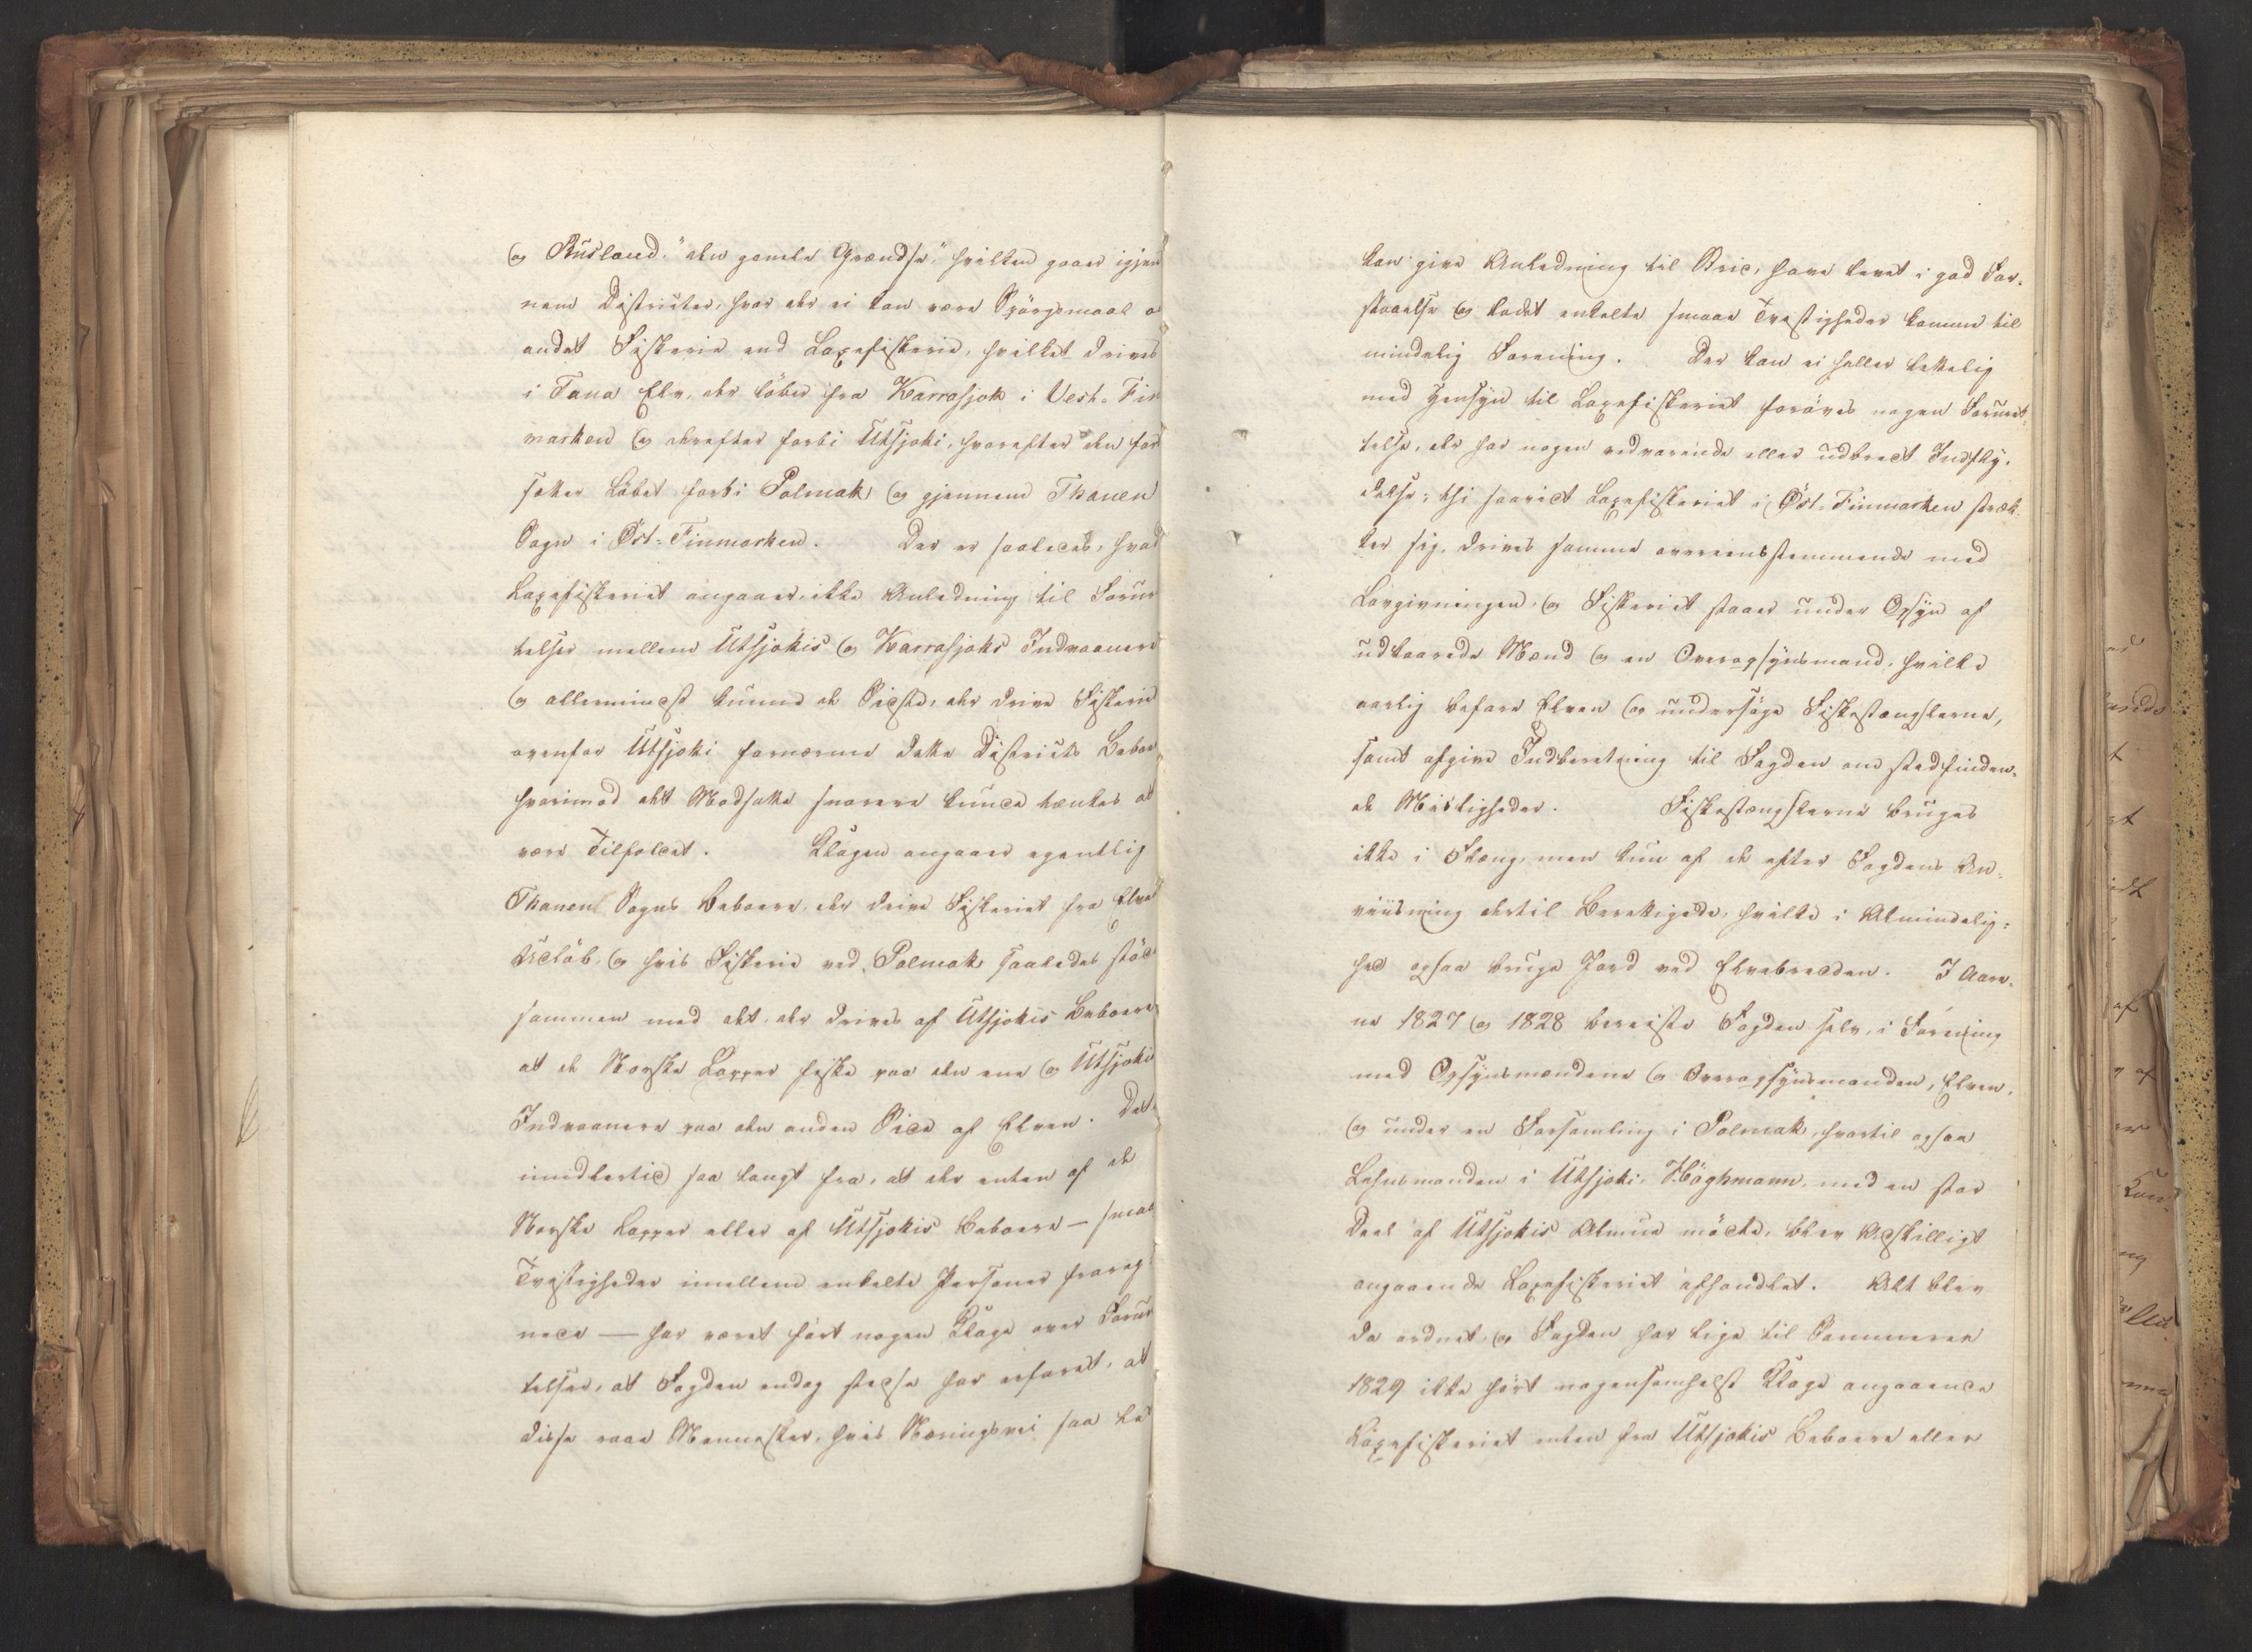 og Rusland. "den gamle Grændse," hvilken gaaer igjen
nem Districter, hvor der ei kan være Spörgsmaal o
andet Fiskerie end Laxefiskerie, hvilket drives
i Tana Elv, der löber fra Karrasjok i Vest-Fin
marken og derefter forbi Utsjoki, hvorefter den fort
sætter Löbet forbi Polmak og gjennem Thanen
Sogn i Öst-Finmarken. Der er saaledes, hvad
Laxefiskeriet angaaer, ikke Anledning til Forur
telser mellem Utsjokis og Karrasjoks Indvaanere
og allermindst kunne de Sidste, der drive Fiskerie
ovenfor Utsjoki fornærme dette Districts Beboer
hvorimod det Modsatte snarere kunde tænkes at
være Tilfældet. Klagen angaaer egentlig
Thanens Sogns Beboere, der drive Fiskeriet fra Elvens
Udlöb, og hvis Fiskerie ved Polmak saaledes stöd
sammen med det, der drives af Utsjokis Beboere
at de Norske Lapper fiske paa den ene og Utsjokis
Indvaanere paa den anden Side af Elven. Det
imidlertid saa langt fra, at der enten af de
Norske Lapper eller af Utsjokis Beboere — smaa
Tvistigheder imellem enkelte Personer frareg
nede — har været hört nogen Klage over Forur
telser, at Fogden endog stedse har erfaret, at
disse raae Mennesker, hvis Næringsvei saa let
kan give Anledning til Kriv, have levet i god For-
staaelse og ladet enkelte smaae Tvistigheder komme til
mindelig Forening. Der kan ei heller lettelig
med Hensyn til Laxefiskeriet foröves nogen Foruret-
telse, der har nogen vedvarende eller udbredt Indfly-
delse; thi saavidt Laxefiskeriet i Öst-Finmarken stræk-
ker sig, drives samme overeensstemmende med
Lovgivningen, og Fiskeriet staaer under Opsyn af
udkaarede Mænd og en Overopsynsmand, hvilke
aarlig befare Elven og undersöge Fiskestængslerne,
samt afgive Indberetning til Fogden om stedfinden-
de Misligheder. Fiskestængslerne bruges
ikke i Flæng, men kun af de efter Fogdens An-
viisning dertil Berettigede, hvilke i Almindelig-
hed ogsaa bruge Jord ved Elvebredden. I Aare-
ne 1827 og 1828 bereiste Fogden selv, i Forening
med Opsynsmændene og Overopsynsmanden, Elven,
og under en Forsamling i Polmak, hvortil ogsaa
Lehnsmanden i Utsjoki, Höghmann, med en stor
Deel af Utsjokis Almue mödte, blev Adskilligt
angaaende Laxefiskeriet afhandlet. Alt blev
da ordnet, og Fogden har lige til Sommeren
1829 ikke hört nogensomhelst Klage angaaende
Laxefiskeriet enten fra Utsjokis Beboere eller